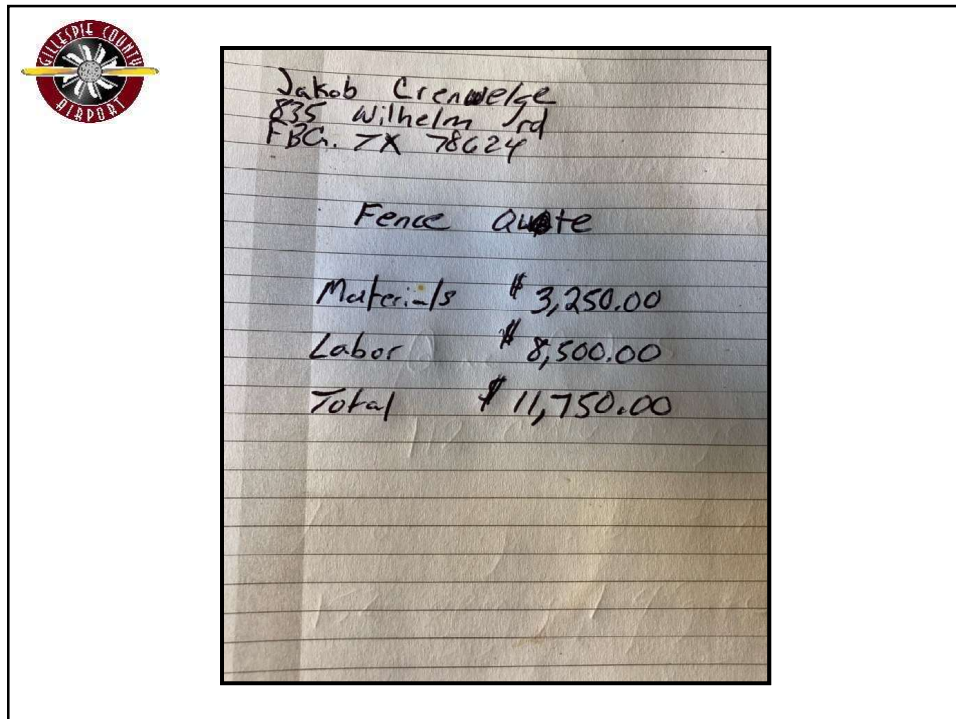 GILLESPIE COUNTY
AIRPORT
Jakob Crenwelge
835 Wilhelm rd
FBG. TX 78624
Fence Quote
Materials $ 3,250.00
Labor $ 8,500.00
Total $ 11,750.00